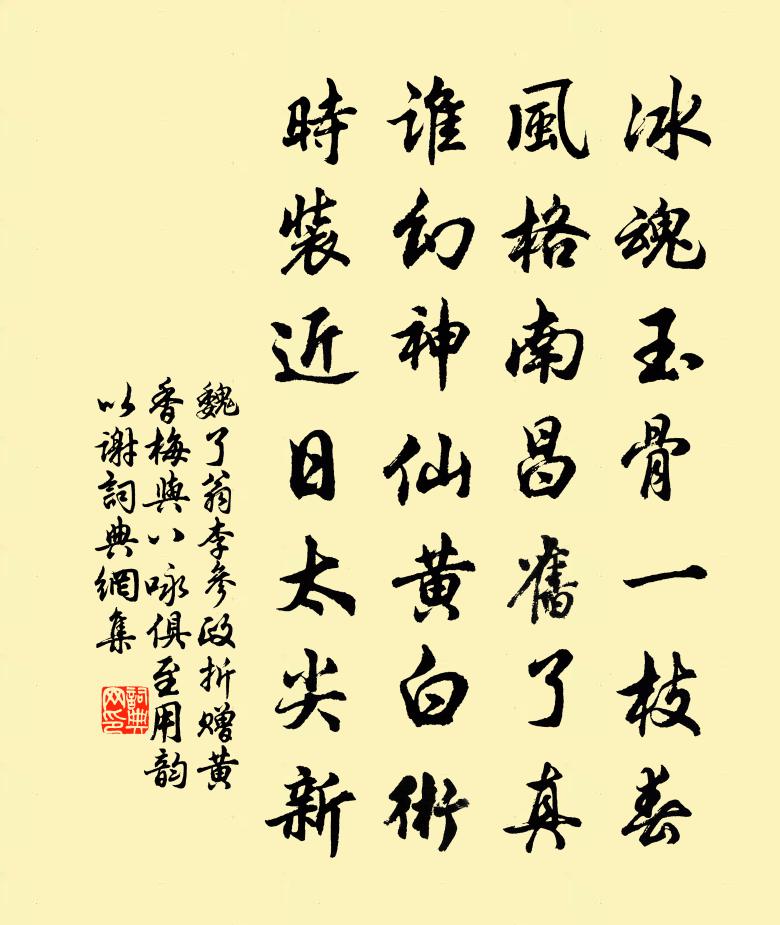 冰魂玉骨一枝春
風格南昌舊了真
誰幻神仙黄白術
時裝近日太尖新
魏了翁李參政折赠黄
香梅與八咏俱至用韵
以谢詞典網集
詞典网印